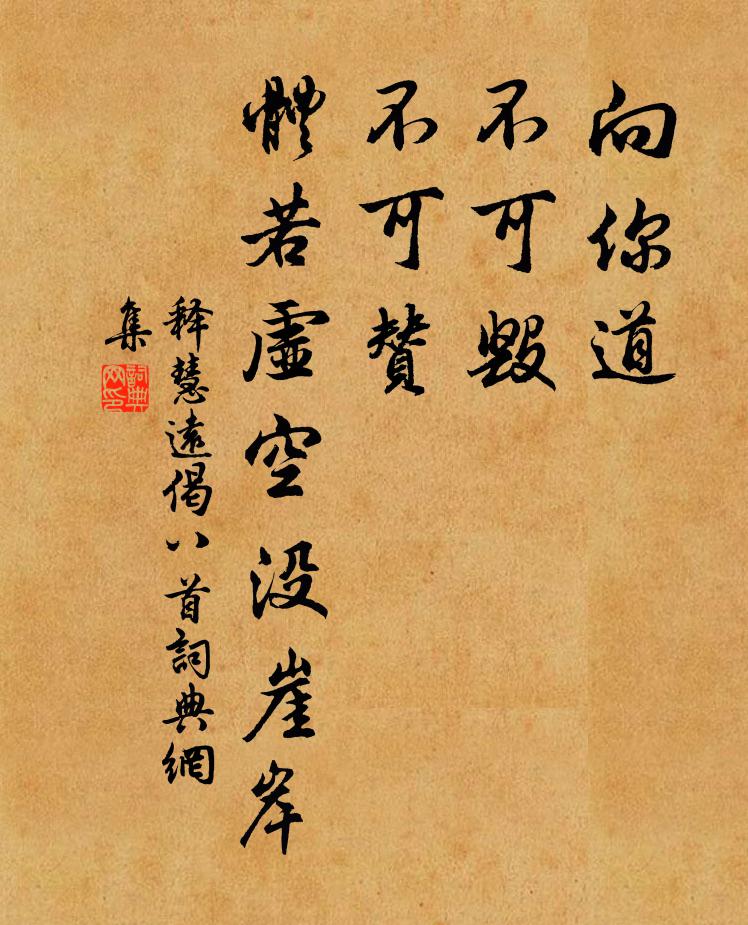 向你道
不可毀
不可贊
體若虛空没崖岸
释慧遠偈八首詞典網
集
詞典网印